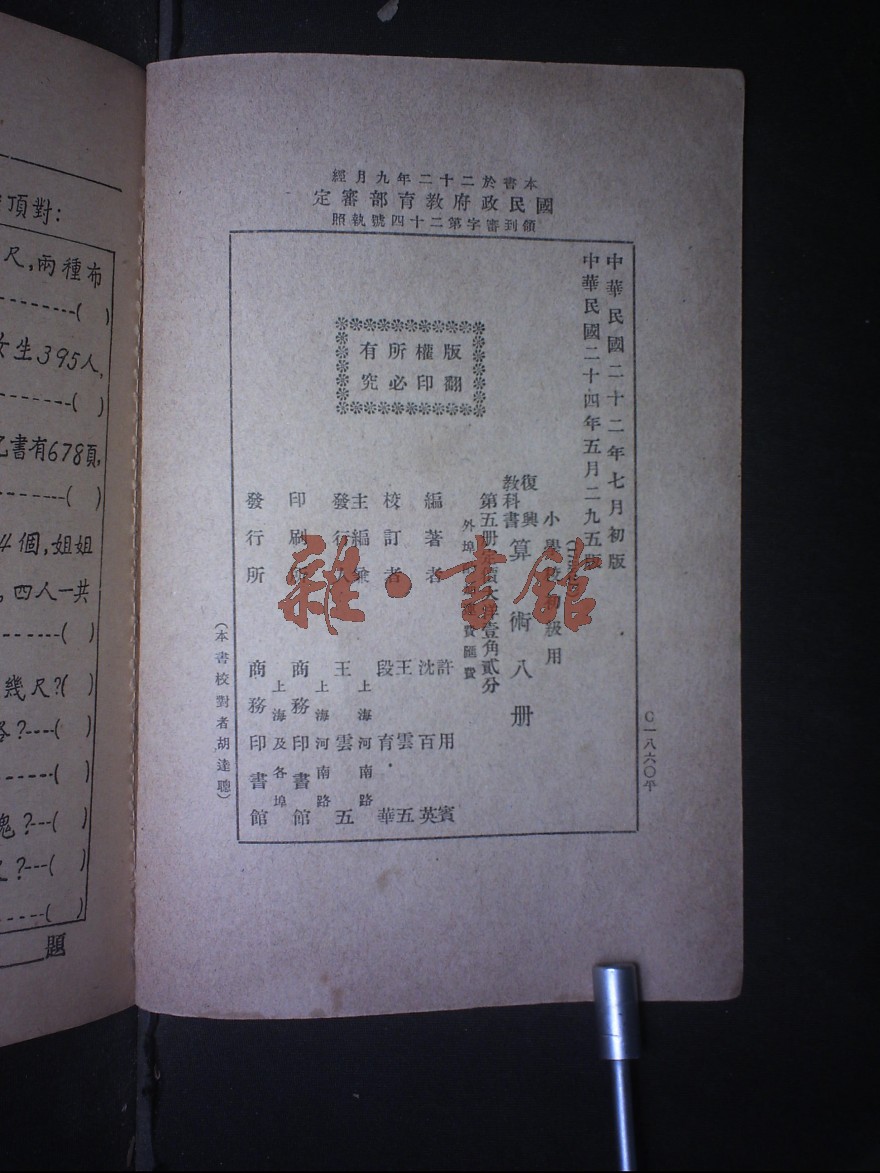 本書於二十二年九月經
國民政府教育部審定
領到審字第二十四號執照
中華民國二十二年七月初版
中華民國二十四年五月二九五版
版權所有
翻印必究
小學校初級用
復興教科書
算術八册
第五册定價大洋壹角貳分
外埠酌加運費匯費
編著者 許用賓 沈百英
校訂者 王雲五 段育華
主編兼發行人 王雲五
上海河南路
印刷所 商務印書館
上海河南路
發行所 商務印書館
上海及各埠
(本書校對者胡達聰)
C一八六〇平
雜·書館
頂對:
尺,兩種布
-----( )
女生395人,
-----( )
乙書有678頁,
-----( )
4個,姐姐
,四人一共
-----( )
幾尺?( )
?----( )
-----( )
?---( )
?---( )
-----( )
題